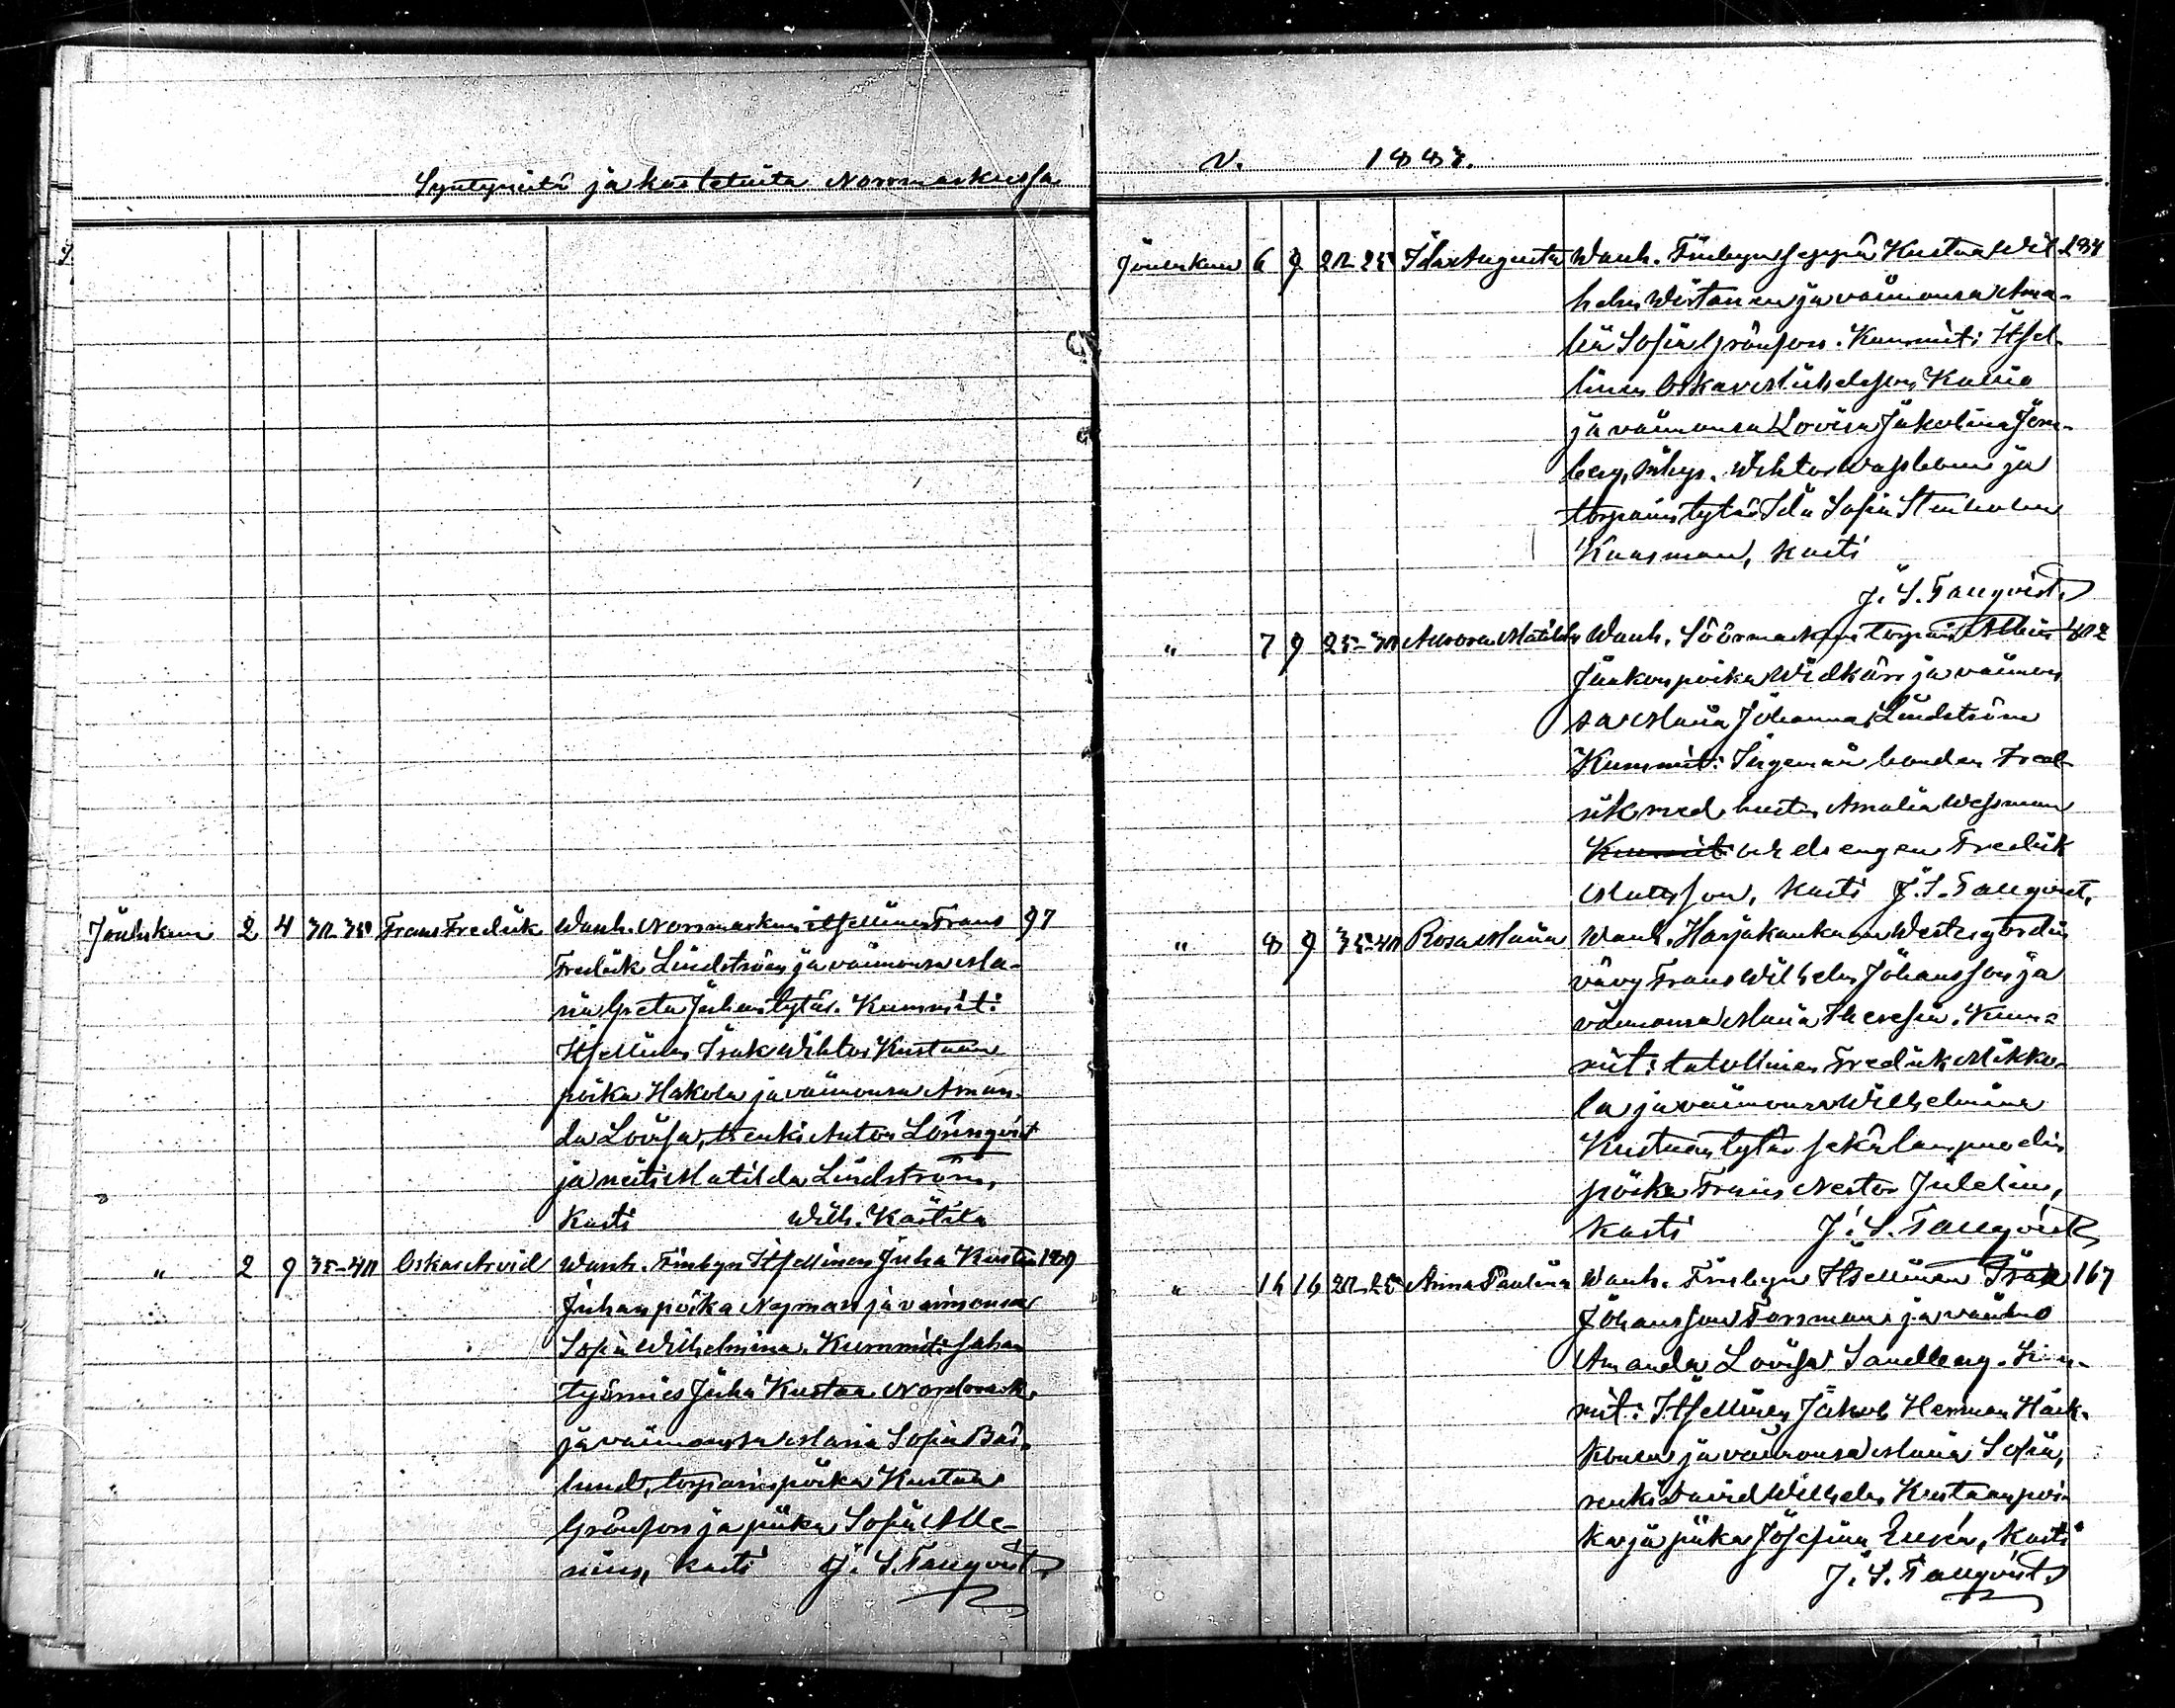 Syntyneitä ja kastetuita Norrmarkussa
Joulukuu 2 4 30-35 Frans Fredrik Wanh. Norrmarkun itsellinen Frans 97
Fredrik Lindström ja vaimonsa Ma-
ria Greta Juhantytär. Kummit:
Itsellinen Isak Wihtor Kustaan-
poika Hakola ja vaimonsa Aman-
da Lovisa, renki Anton Lönnqvist
ja neiti Matilda Lindström,
Kasti Wilh. Kastila
" 2 9 35-40 Oskar Arvid Wanh. Finbyn Itsellinen Juha Kustaa 189
Juhanpoika Nyman ja vaimonsa
Sofia Wilhelmina. Kummit: sahan
työmies Juha Kustaa Nordback
ja vaimonsa Maria Sofia Back-
lund, torparinpoika Kustaa
Grönfors ja piika Sofia
Kasti J. S. Tallqvist
V. 1887.
Joulukuu 6 9 20-25 Ida Augusta Wanh. Finbyn seppä Kustaa Wil- 284
helm Wirtanen ja vaimonsa Ama-
lia Sofia Grönfors. Kummit: Itsel-
linen Oskar Mickelsson Kallio
ja vaimonsa Lovisa Jakolina
berg, Wihtor ja
torparin tytär Ida Sofia Stenholm
Kaasman, Kasti
J. S. Tallqvist
" 7 9 25-30 Aurora Matilda Wanh. Söörmarkun torpari Albin 402
Jaakonpoika Widkärr ja vaimon-
sa Maria Johanna Lindström
Kummit: Ingemar bonden Fred-
rik med hustru Amalia Wessman
Kummit och drengen Fredrik
Matsson, Kasti J. S. Tallqvist.
" 8 9 35-40 Rosa Maria Wanh. Harjakankaan Westergårdin
vävy Frans Wilhelm Johansson ja
vaimonsa Maria Theresia. Kum-
mit: talollinen Fredrik Mikko-
la ja vaimonsa Wilhelmina
Kustaantytär sekä lampuodin
poika Frans Nestor Julelin,
Kasti J. S. Tallqvist
" 16 16 20-25 Anna Paulina Wanh. Finbyn Itsellinen Isak 167
Johansson Forsman ja vaimo
Amanda Lovisa Sandberg. Kum-
mit: Itsellinen Jakob Herman Häck-
ja vaimonsa Maria Sofia,
renki David Wilhelm Kustaanpoi-
ka ja piika Josefina Kasti
J. S. Tallqvist